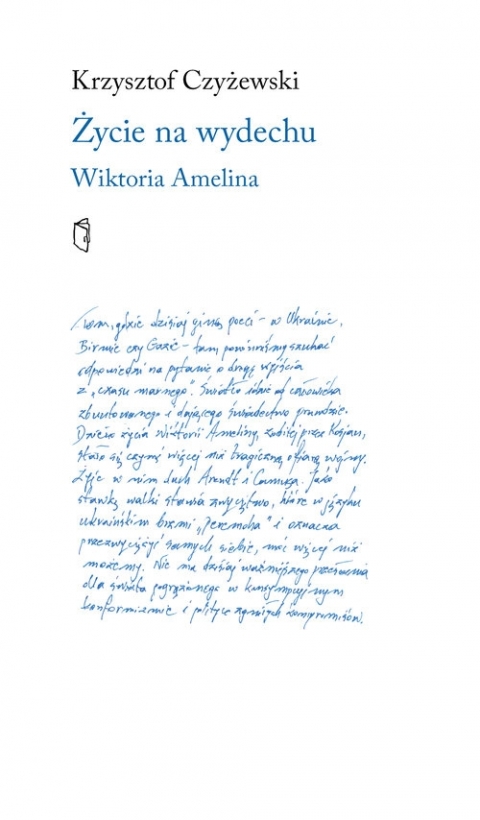 Krzysztof Czyżewski
Życie na wydechu
Wiktoria Amelina
Tam, gdzie dzisiaj giną poeci – w Ukrainie,
Birmie czy Gazie – tam powinniśmy szukać
odpowiedzi na pytanie o drogę wyjścia
z „czasu marnego”. Światło idzie od człowieka
zbuntowanego i dającego świadectwo prawdzie.
Dzieło życia Wiktorii Ameliny, zabitej przez Rosjan,
stało się czymś więcej niż tragiczną ofiarą wojny.
Żyje w nim duch Arendt i Camusa. Jako
stawkę walki stawia zwycięstwo, które w języku
ukraińskim brzmi „Peremoha” i oznacza
przezwyciężyć samych siebie, móc więcej niż
możemy. Nie ma dzisiaj ważniejszego przesłania
dla świata pogrążonego w konsumpcyjnym
konformizmie i polityce zgniłych kompromisów.